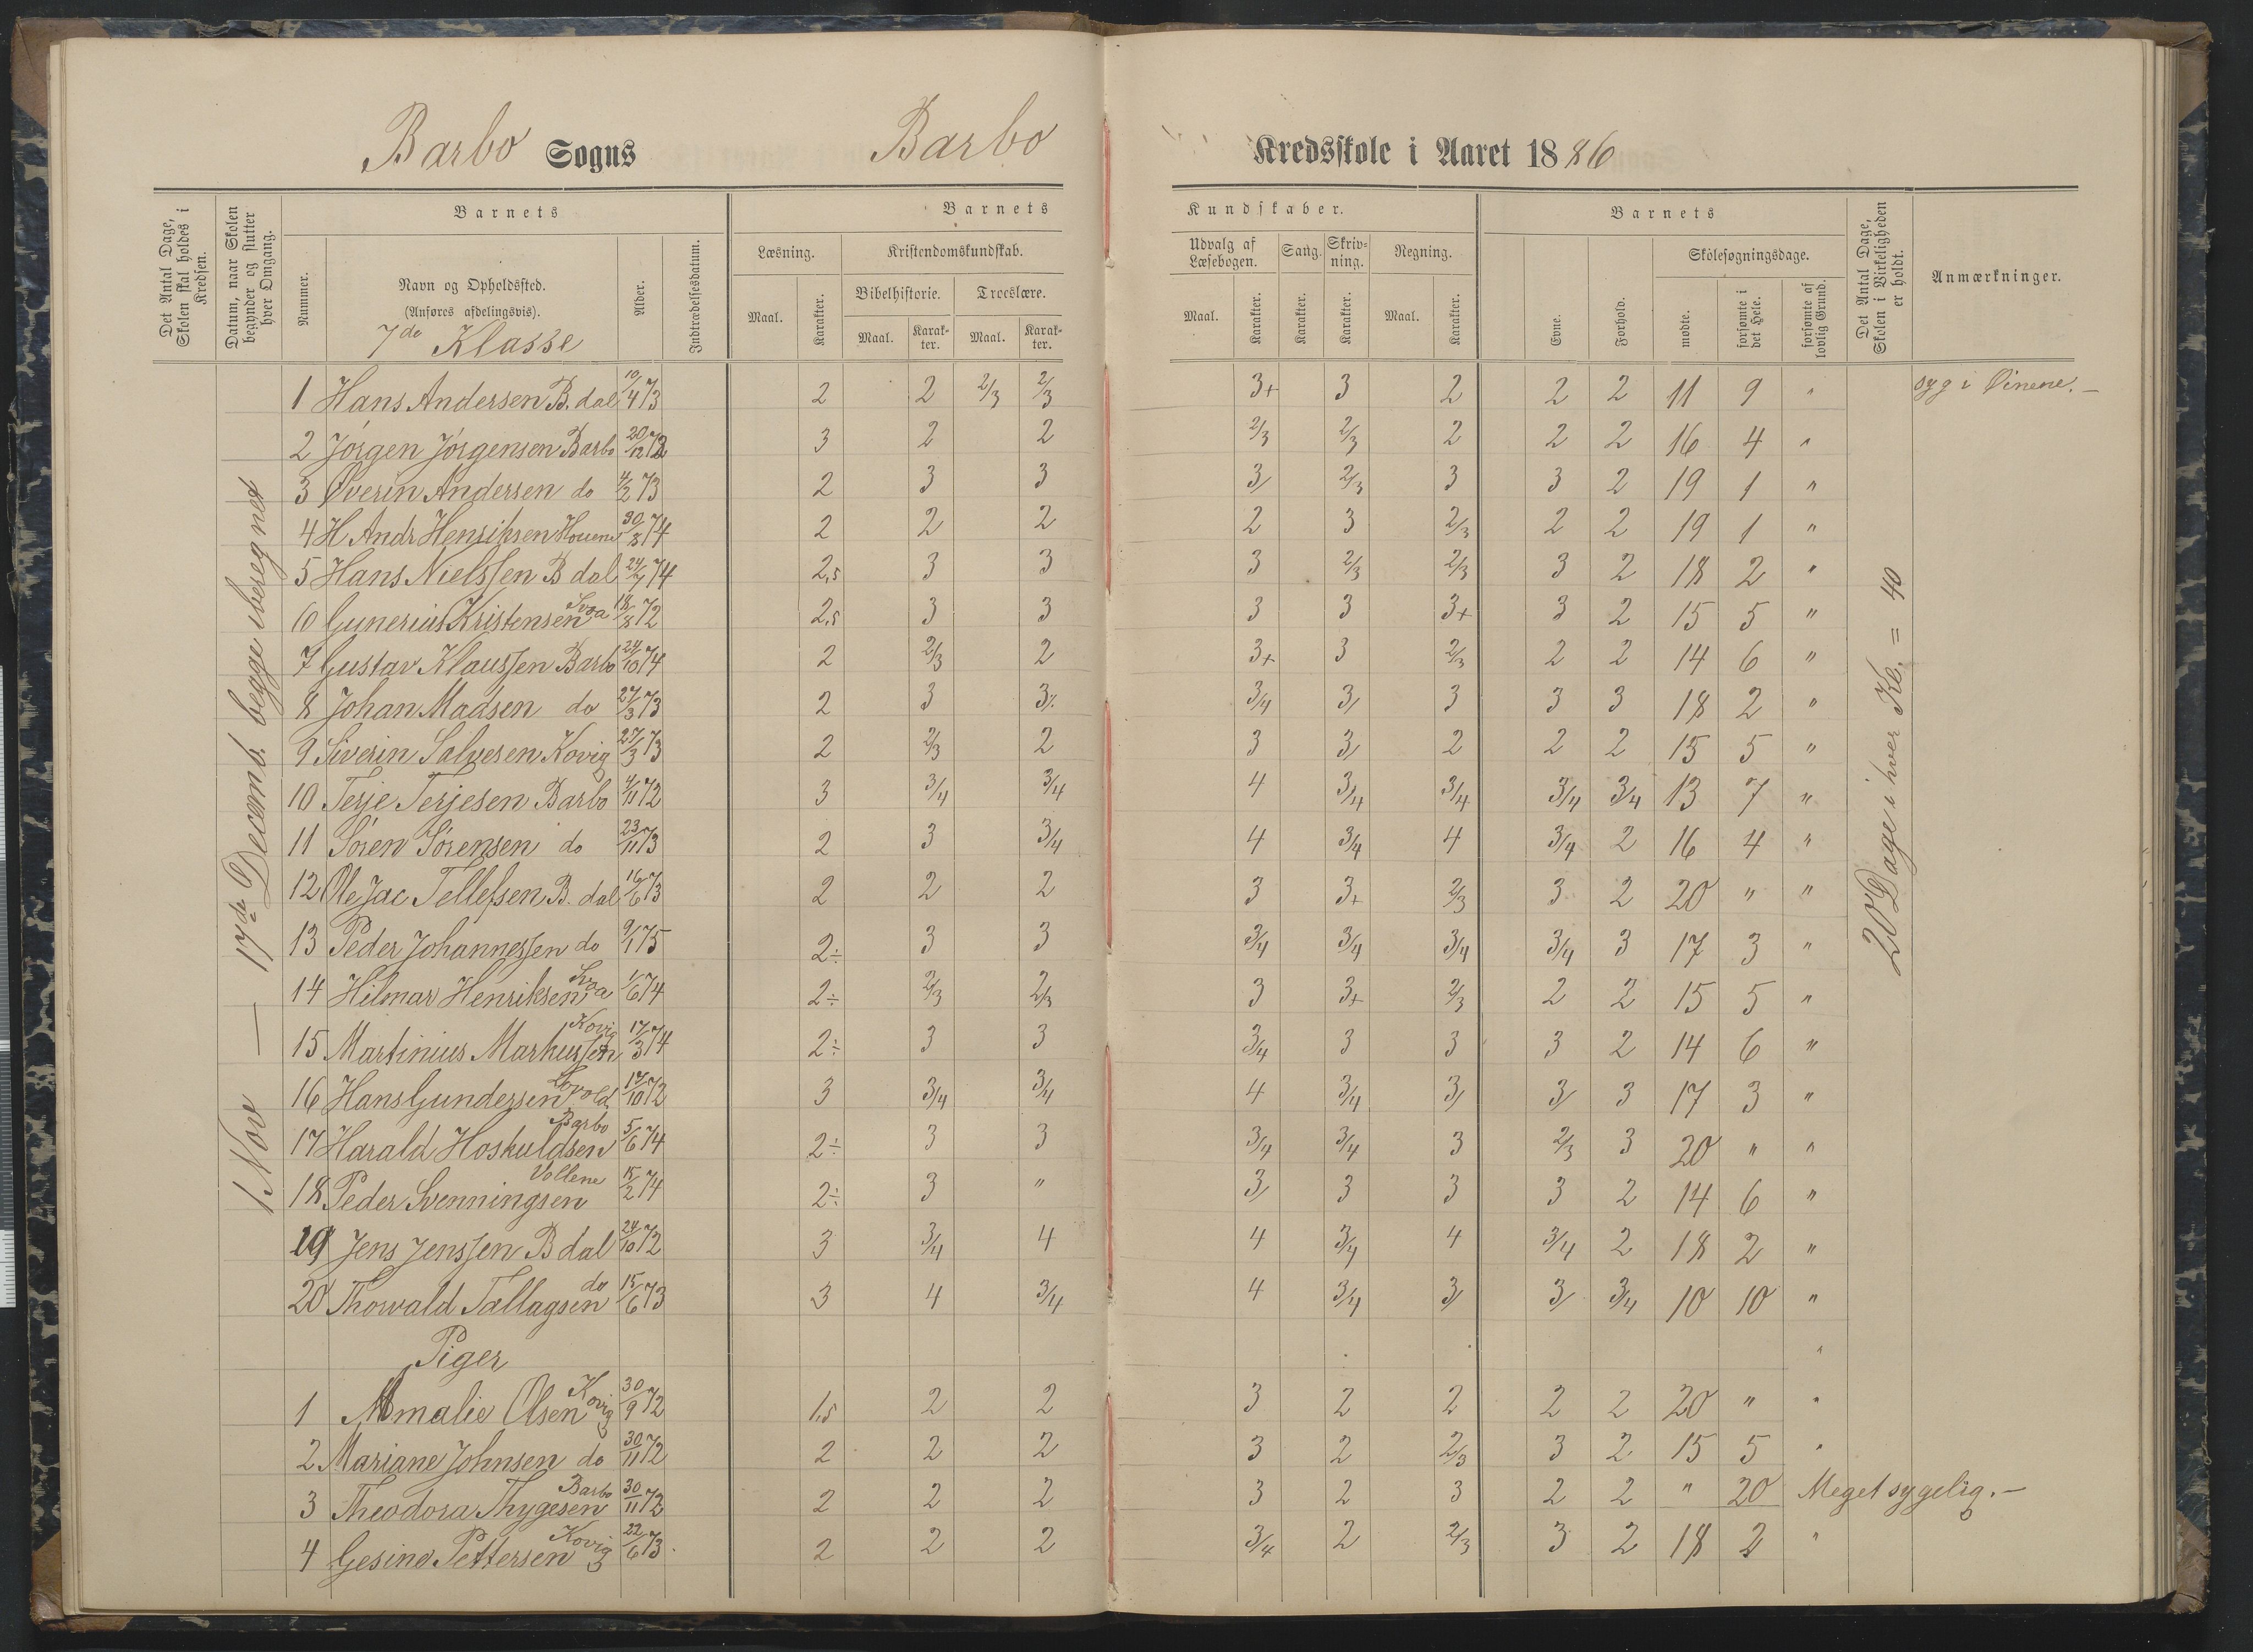 Barbo Sogns Barbo Kredsskole i Aaret 1886
Det Antal Dage, Skolen skal holdes i Kredsen.
Datum, naar Skolen begynder og slutter hver Omgang.
Barnets
Nummer.
Navn og Opholdssted.
(Anføres afdelingsvis).
7de Klasse
Alder.
Indtrædelsesdatum.
Barnets Kundskaber.
Læsning.
Maal.
Karakter.
Kristendomskundskab.
Bibelhistorie.
Maal.
Karakter.
Troeslære.
Maal.
Karakter.
Udvalg af Læsebogen.
Maal.
Karakter.
Sang.
Karakter.
Skrivning.
Karakter.
Regning.
Maal.
Karakter.
Barnets
Evne.
Forhold.
Skolesøgningsdage.
mødte.
forsømte i det Hele.
forsømte af lovlig Grund.
Det Antal Dage, Skolen i Virkeligheden er holdt.
Anmærkninger.
1 Nov — 17de Decemb. begge iberegnet
20 Dage i hver Kl. = 40
1 Hans Andersen B. dal 10/4 73 2 2 2/3 2/3 3+ 3 2 2 2 11 9 " syg i Øinene. —
2 Jørgen Jørgensen Barbo 20/12 3 2 2 2/3 2/3 2 2 2 16 4 "
3 Øverin Andersen do 4/2 73 2 3 3 3/ 2/3 3 3 2 19 1 "
4 H Andr Henriksen Houene 30/8 74 2 2 2 2 3 2/3 2 2 19 1 "
5 Hans Nielssen B dal 24/7 74 2,5 3 3 3 2/3 2/3 3 2 18 2 "
6 Gunerius Kristensen 18/8 72 2,5 3 3 3 3 3+ 3 2 15 5 "
7 Gustav Klaussen Barbo 24/10 74 2 2/3 2 3+ 3 2/3 2 2 14 6 "
8 Johan Madsen do 27/3 73 2 3 3/. 3/4 3/ 3 3 3 18 2 "
9 Siverin Salvesen Kovig 27/3 73 2 2/3 2 3 3/ 2 2 2 15 5 "
10 Terje Terjesen Barbo 4/11 72 3 3/4 3/4 4 3/4 3/4 3/4 3/4 13 7 "
11 Søren Sørensen do 23/11 73 2 3 3/4 4 3/4 4 3/4 2 16 4 "
12 Ole Jac Tellefsen B. dal 16/6 73 2 2 2 3 3+ 2/3 3 2 20 " "
13 Peder Johannessen do 9/1 75 2÷ 3 3 3/4 3/4 3/4 3/4 3 17 3 "
14 Hilmar Henriksen 1/6 74 2÷ 2/3 2/3 3 3+ 2/3 2 2 15 5 "
15 Martinius Markussen Kovig 17/3 74 2÷ 3 3 3/4 3 3 3 2 14 6 "
16 Hans Gundersen 17/10 72 3 3/4 3/4 4 3/4 3/ 3/ 3 17 3 "
17 Harald Hoskuldsen Barbo 5/6 74 2÷ 3 3 3/4 3/4 3 2/3 3 20 " "
18 Peder Svenningsen Vollene 15/2 74 2÷ 3 " 3/ 3 3 3 2 14 6 "
19 Jens Jenssen B dal 24/10 72 3 3/4 4 4 3/4 4 3/4 2 18 2 "
20 Thorvald Tallagsen do 15/6 73 3 4 3/4 4 3/4 3/ 3/ 3/4 10 10 "
Piger
1 Amalie Olsen Kovig 30/9 72 1,5 2 2 3 2 2 2 2 20 " "
2 Mariane Johnsen do 30/11 72 2 2 2 3 2 2/3 3 2 15 5 "
3 Theodora Thygesen Barbo 30/11 72 2 2 2 3 2 3 2 2 " 20 Meget sygelig. —
4 Gesine Pettersen Kovig 22/6 73 2 2 2 3/4 2 2/3 3 2 18 2 "